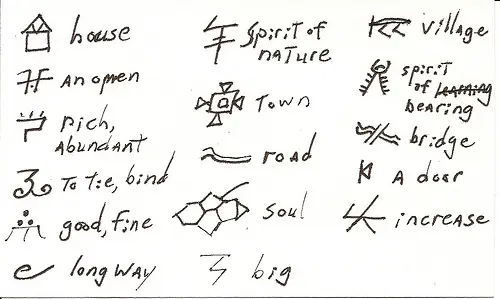 house
An open
Rich,
Abundant
To tie, bind
good, fine
long way
Spirit of
nature
Town
road
soul
big
village
spirit
of
bearing
bridge
A door
increase